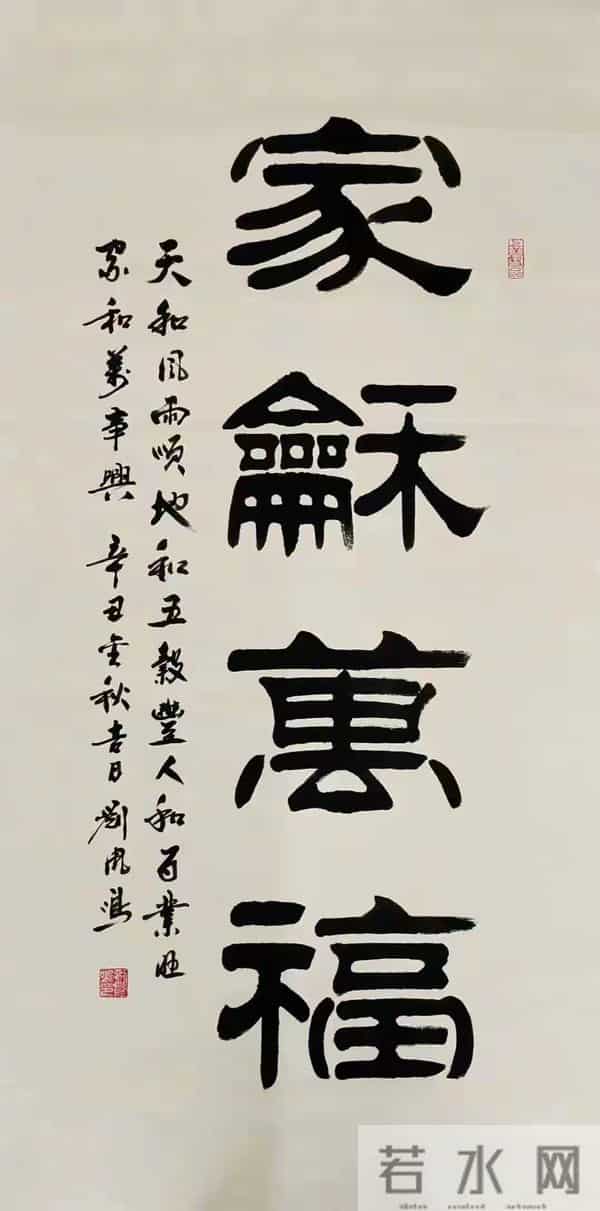 家龢萬福
天和風雨順地和五穀豐人和百業旺
家和萬事興 辛丑金秋吉日 劉鳳
若水网